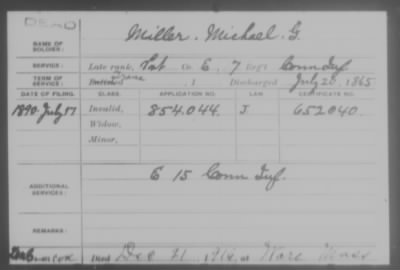 DEAD
NAME OF SOLDIER: Miller. Michael G.
SERVICE: Late rank, Pvt Co. E, 7 Reg't Conn Inf
TERM OF SERVICE: Enlisted , 1 Discharged July 20, 1865
DATE OF FILING. CLASS. APPLICATION NO. LAW. CERTIFICATE NO.
1890. July 17 Invalid, 854.044. J 652040.
Widow,
Minor,
ADDITIONAL SERVICES: E 15 Conn Inf.
REMARKS:
Died Dec 21, at Ware Mass